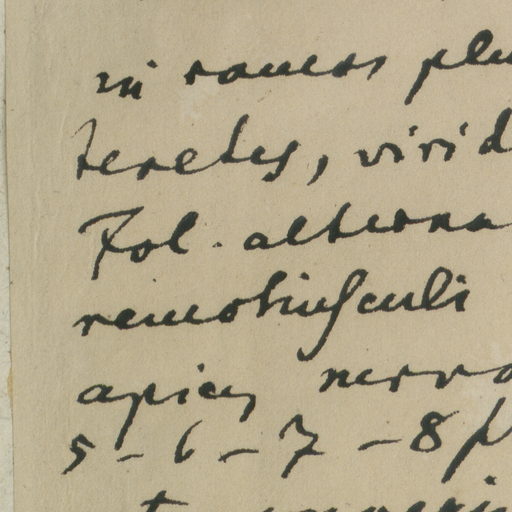 in ramos plu
teretes, virid
Fol. alterna
remotiusculi
apices nervo
5-6-7-8 p